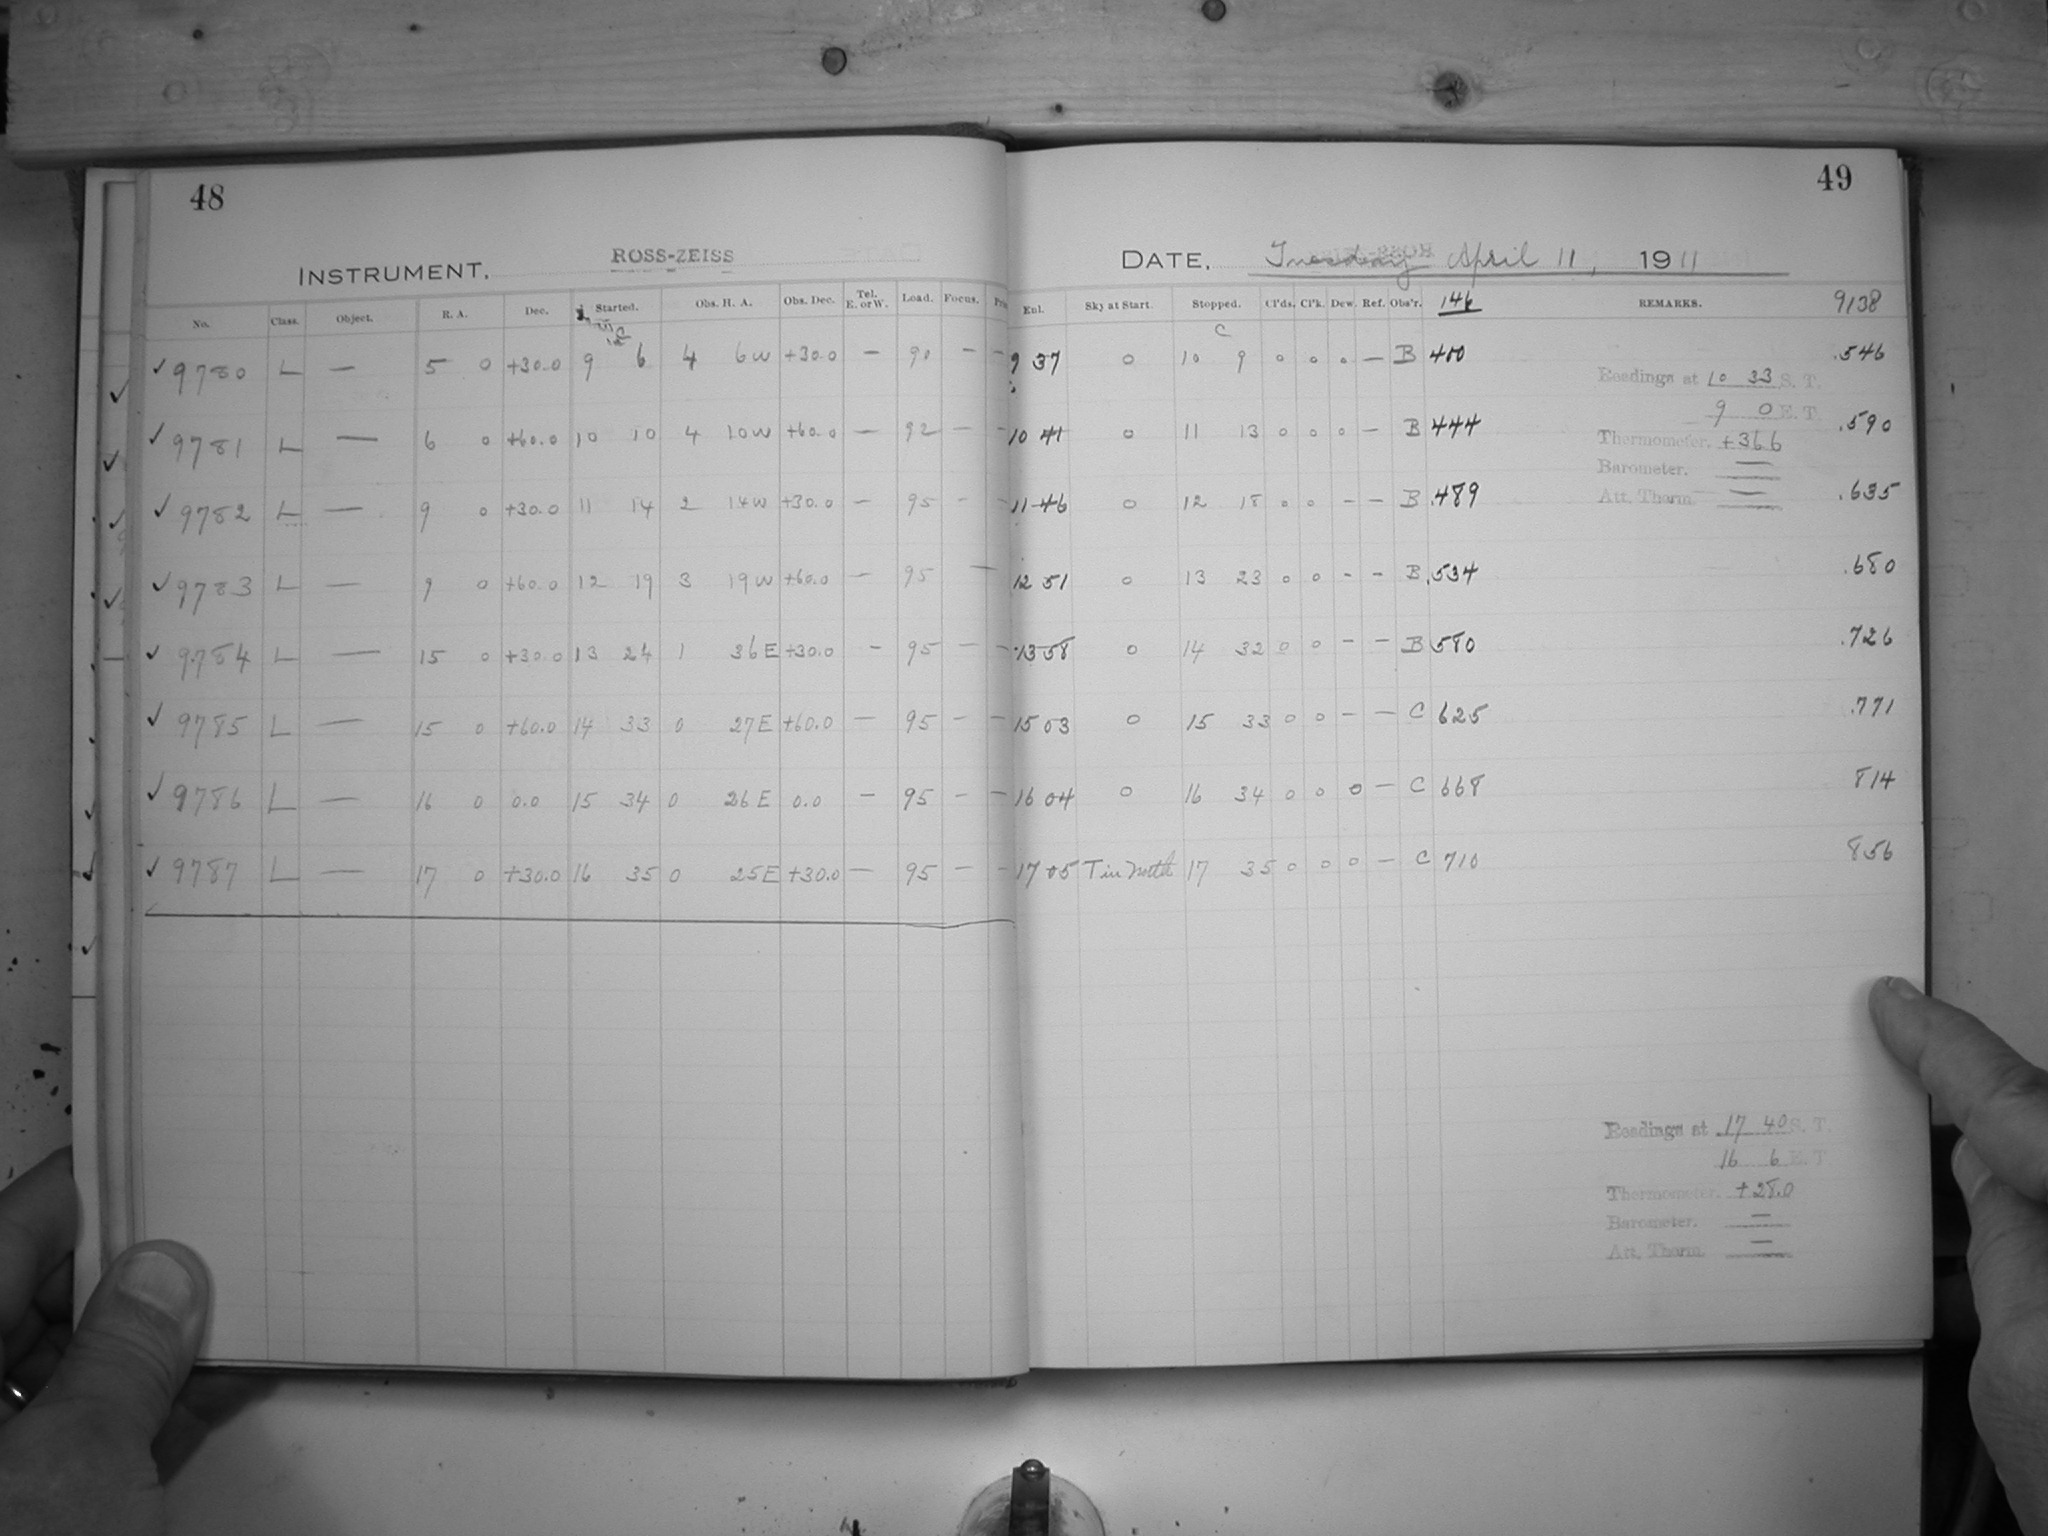 48
INSTRUMENT, ROSS-ZEISS
No. Class. Object. R. A. Dec. Started. Obs. H. A. Obs. Dec. Tel. E. or W. Load. Focus.
✓ 9780 L — 5 0 +30.0 9 6 4 6W +30.0 — 90 — —
✓ 9781 L — 6 0 +60.0 10 10 4 10W +60.0 — 92 — —
✓ 9782 L — 9 0 +30.0 11 14 2 14W +30.0 — 95 - —
✓ 9783 L — 9 0 +60.0 12 19 3 19W +60.0 — 95 —
✓ 9784 L — 15 0 +30.0 13 24 1 36E +30.0 - 95 — —
✓ 9785 L — 15 0 +60.0 14 33 0 27E +60.0 — 95 - —
✓ 9786 L — 16 0 0.0 15 34 0 26E 0.0 — 95 - —
✓ 9787 L — 17 0 +30.0 16 35 0 25E +30.0 — 95 — -
49
DATE, Tuesday April 11, 1911
Enl. Sky at Start. Stopped. Cl'ds. Cl'k. Dew. Ref. Obs'r. 146 REMARKS. 9138
C
9 37 0 10 9 0 0 0 — B 400 .546
Readings at 10 33 S. T.
9 0 E. T.
10 41 0 11 13 0 0 0 — B 444 .590
Thermometer. +36.6
Barometer. —
11 46 0 12 18 0 0 - — B .489 .635
Att. Therm. —
12 51 0 13 23 0 0 - - B .534 .680
13 58 0 14 32 0 0 - - B 580 .726
15 03 0 15 33 0 0 - - C 625 .771
16 04 0 16 34 0 0 0 — C 668 814
17 05 T in North 17 35 0 0 0 — C 710 856
Readings at 17 40 S. T.
16 6 E. T.
Thermometer. +28.0
Barometer. —
Att. Therm. —